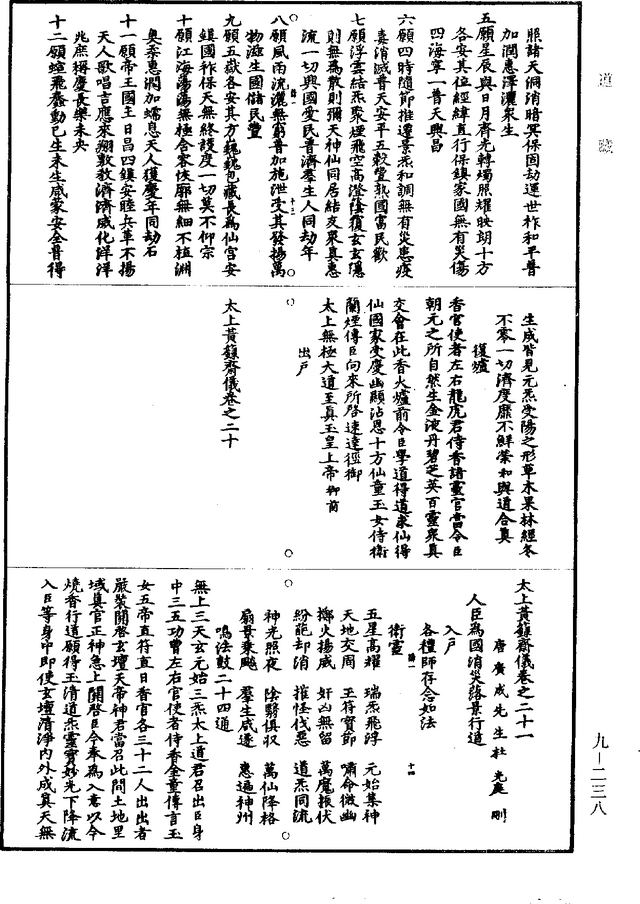 道藏
照諸天洞消暗冥保固劫運世祚和平普
加潤惠澤灑衆生
五願星辰與日月齊光轉燭照耀映朗十方
各安其位經緯直行保鎮家國無有災傷
四海寧一普天興昌
六願四時隨節推遷景炁和調無有災患疫
毒消滅普天安平五穀豐熟國富民歡
七願浮雲結炁聚煙飛空高澄陰復玄玄隱
則無為散則彌天神仙同居結友衆真惠
流一切興國愛民普濟羣生人同劫年
八願風雨流灑無窮普加施泄受其發揚萬
物滋生國儲民豐
九願五嶽各安其方巍巍包藏長為仙宮安
鎮國祚保天無終護度一切莫不仰宗
十願江海蕩蕩無極合容恢廓無細不植淵
奧柔惠潤加蠕息天人獲慶年同劫石
十一願帝王國主日昌四鎮安睦兵革不揚
天人歌唱吉應來翔敷教濟濟威化洋洋
兆庶稱慶長樂未央
十二願蠕飛蠢動已生未生咸蒙安全普得
十三
生成皆見元炁受陽之形草木果林經冬
不零一切濟度靡不鮮榮和與道合真
復爐
香官使者左右龍虎君侍香諸靈官當令臣
朝元之所自然生金液丹碧芝英百靈衆真
交會在此香火爐前令臣學道得道求仙得
仙國家受慶幽顯沾恩十方仙童玉女侍衛
蘭煙傳臣向來所啓速達徑御
太上無極大道至真玉皇上帝御前
出戶
太上黃籙齋儀卷之二十
太上黃籙齋儀卷之二十一
唐廣成先生杜光庭刪
人臣為國消災落景行道
入戶
各禮師存念如法
衛靈
五星高耀 瑞炁飛浮 元始集神
天地交周 玉符寶節 嘯命微幽
擲火揚威 奸凶無留 萬魔振伏
紛葩却消 摧怪伐惡 道炁同流
神光照夜 陰翳俱收 萬仙降格
扇景乘飈 羣生咸遂 惠遍神州
鳴法鼓二十四通
十四
無上三天玄元始三炁太上道君召出臣身
中三五功曹左右官使者侍香金童傳言玉
女五帝直符直日香官各三十二人出出者
嚴裝關啓玄壇天帝神君當召此間土地里
域真官正神急上關啓臣今奉為入意以今
燒香行道願得玉清道炁靈寶妙光下降流
入臣等身中即使玄壇清淨內外成真天無
九—二三八